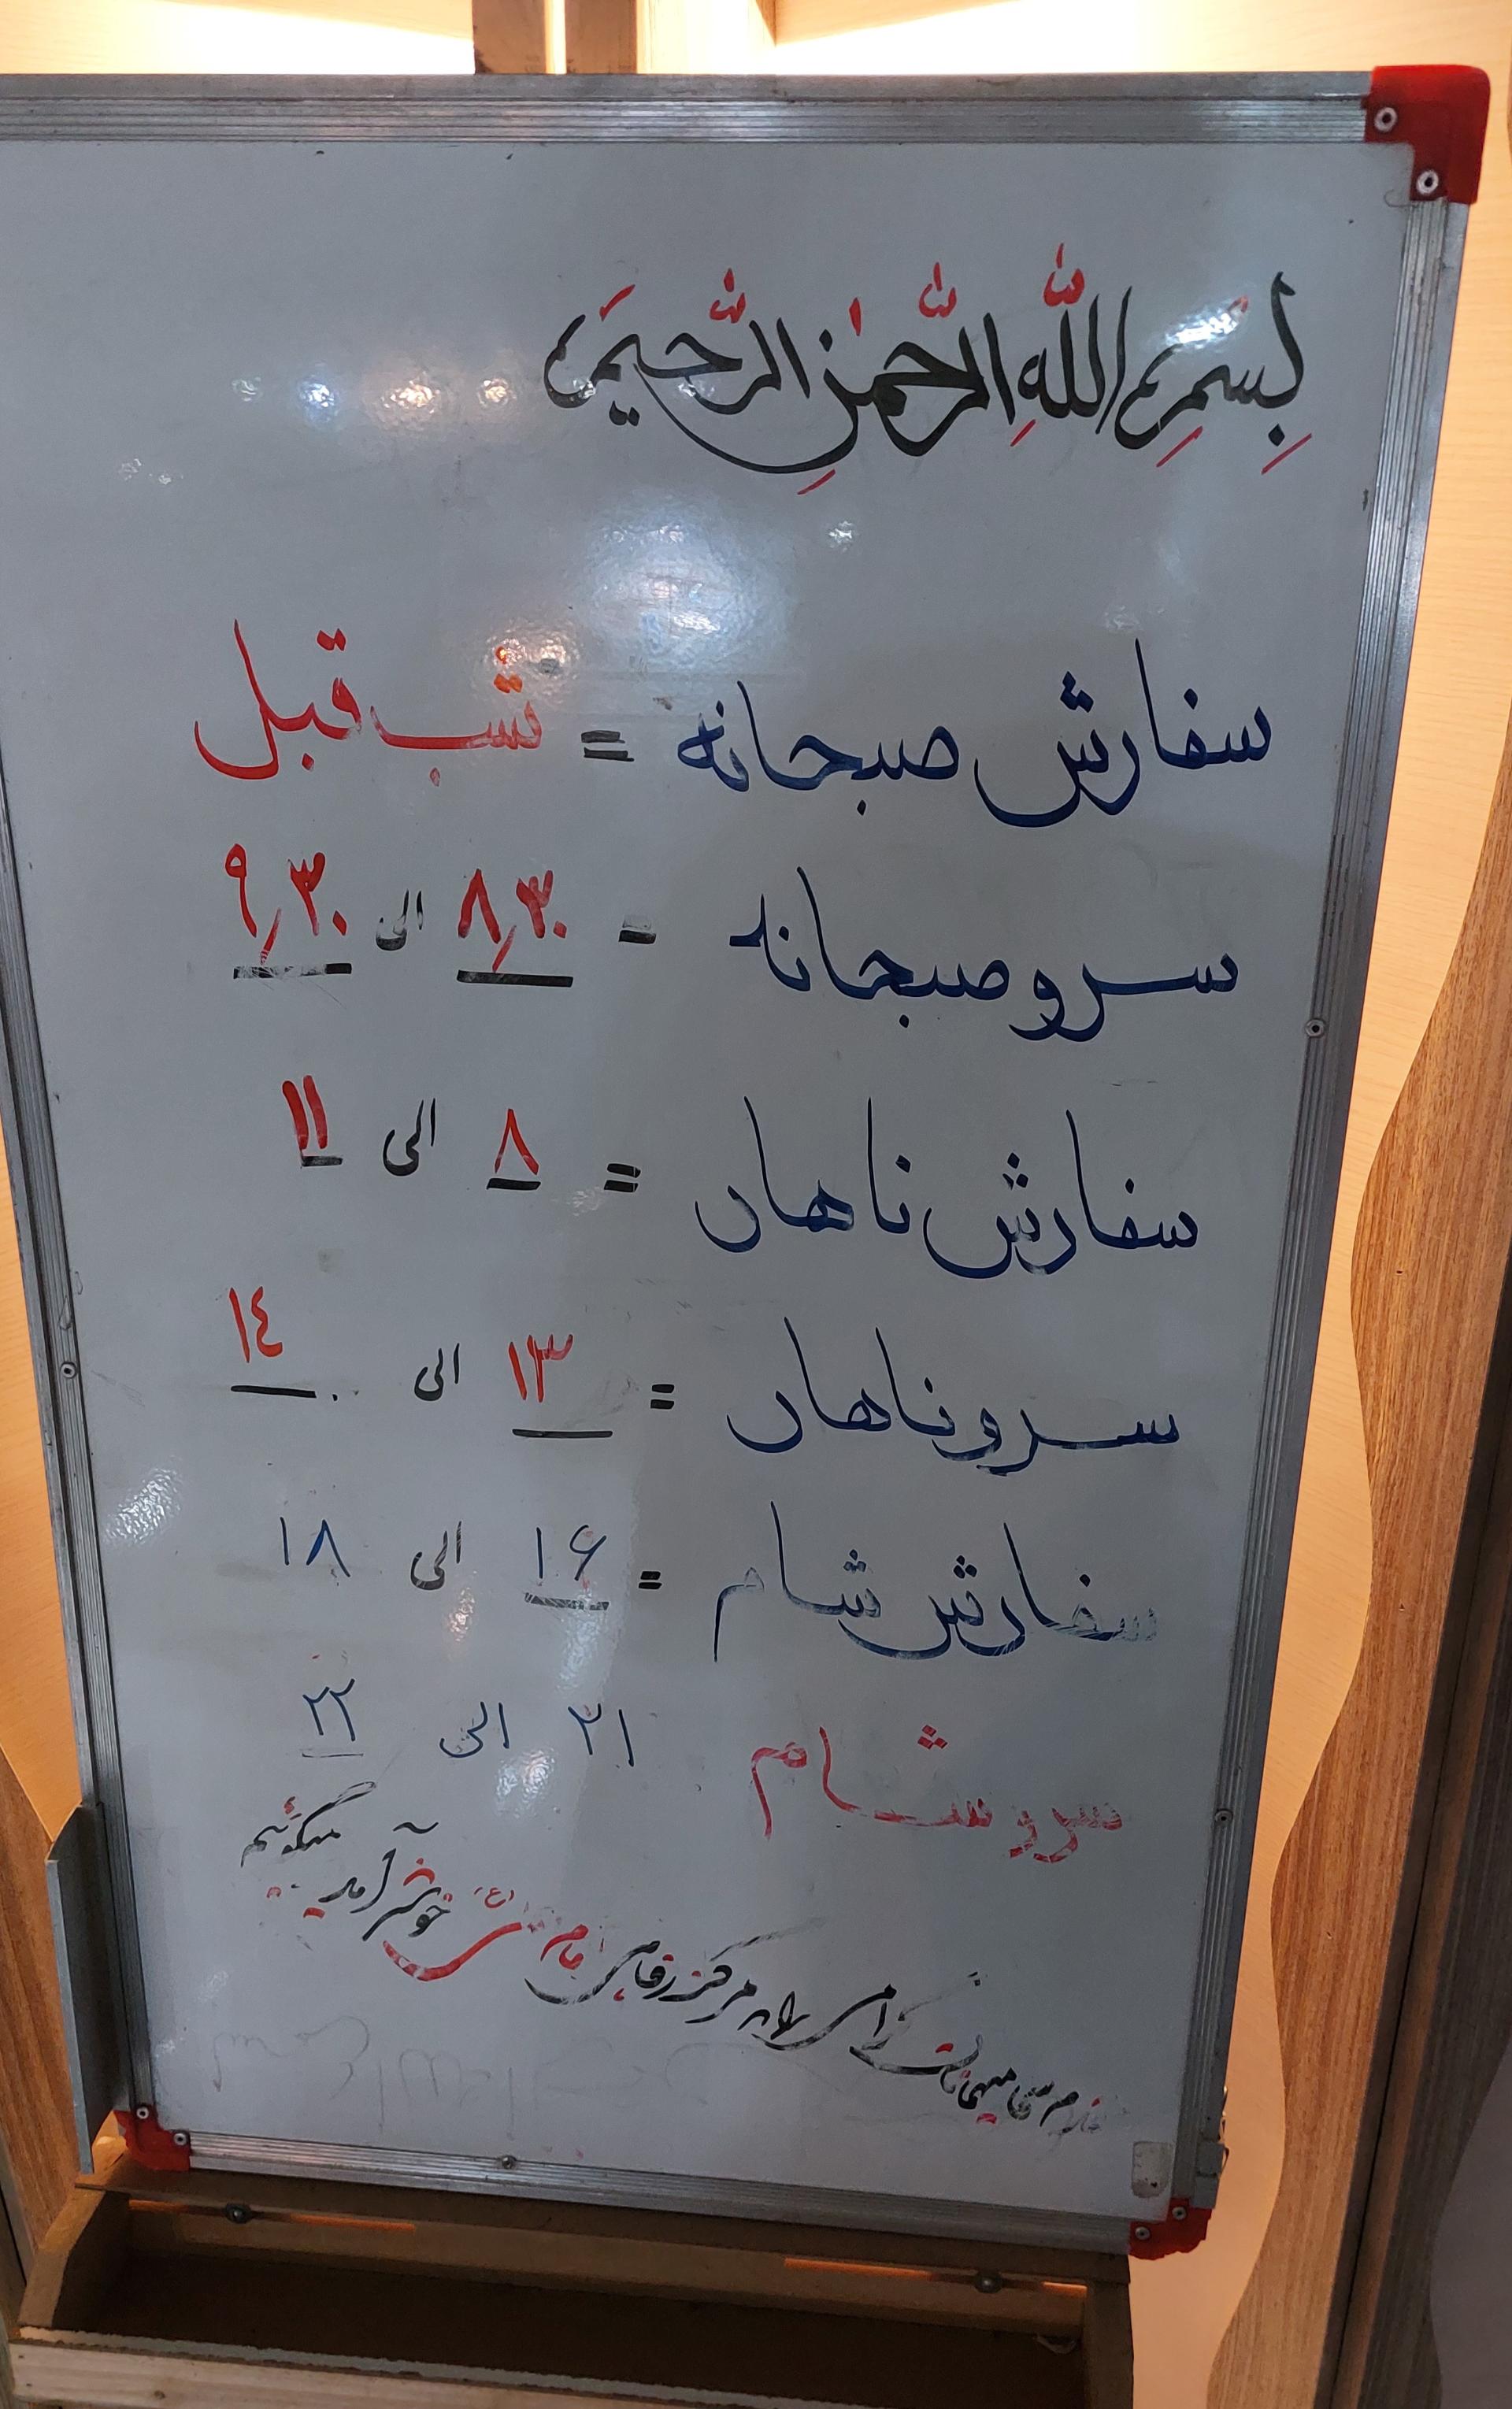 بِسْمِ اللّٰهِ الرَّحْمٰنِ الرَّحیمَ
سفارش صبحانه = شب قبل
سرو صبحانه = ۸٫۳۰ الی ۹٫۳۰
سفارش ناهار = ۸ الی ۱۱
سرو ناهار = ۱۳ الی ۱٤
سفارش شام = ۱۶ الی ۱۸
سرو شام ۲۱ الی ۲۲
مقدم شما میهمانان گرامی را به مرکز رفاهی امام رضا (ع) خوش آمد میگوئیم